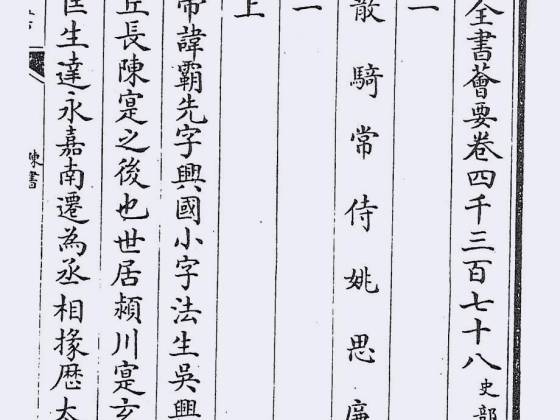 全書薈要卷四千三百七十八史部
一
散騎常侍姚思廉
一
上
帝諱霸先字興國小字法生吳興
丘長陳寔之後也世居潁川寔玄
匡生達永嘉南遷為丞相掾歷太
陳書